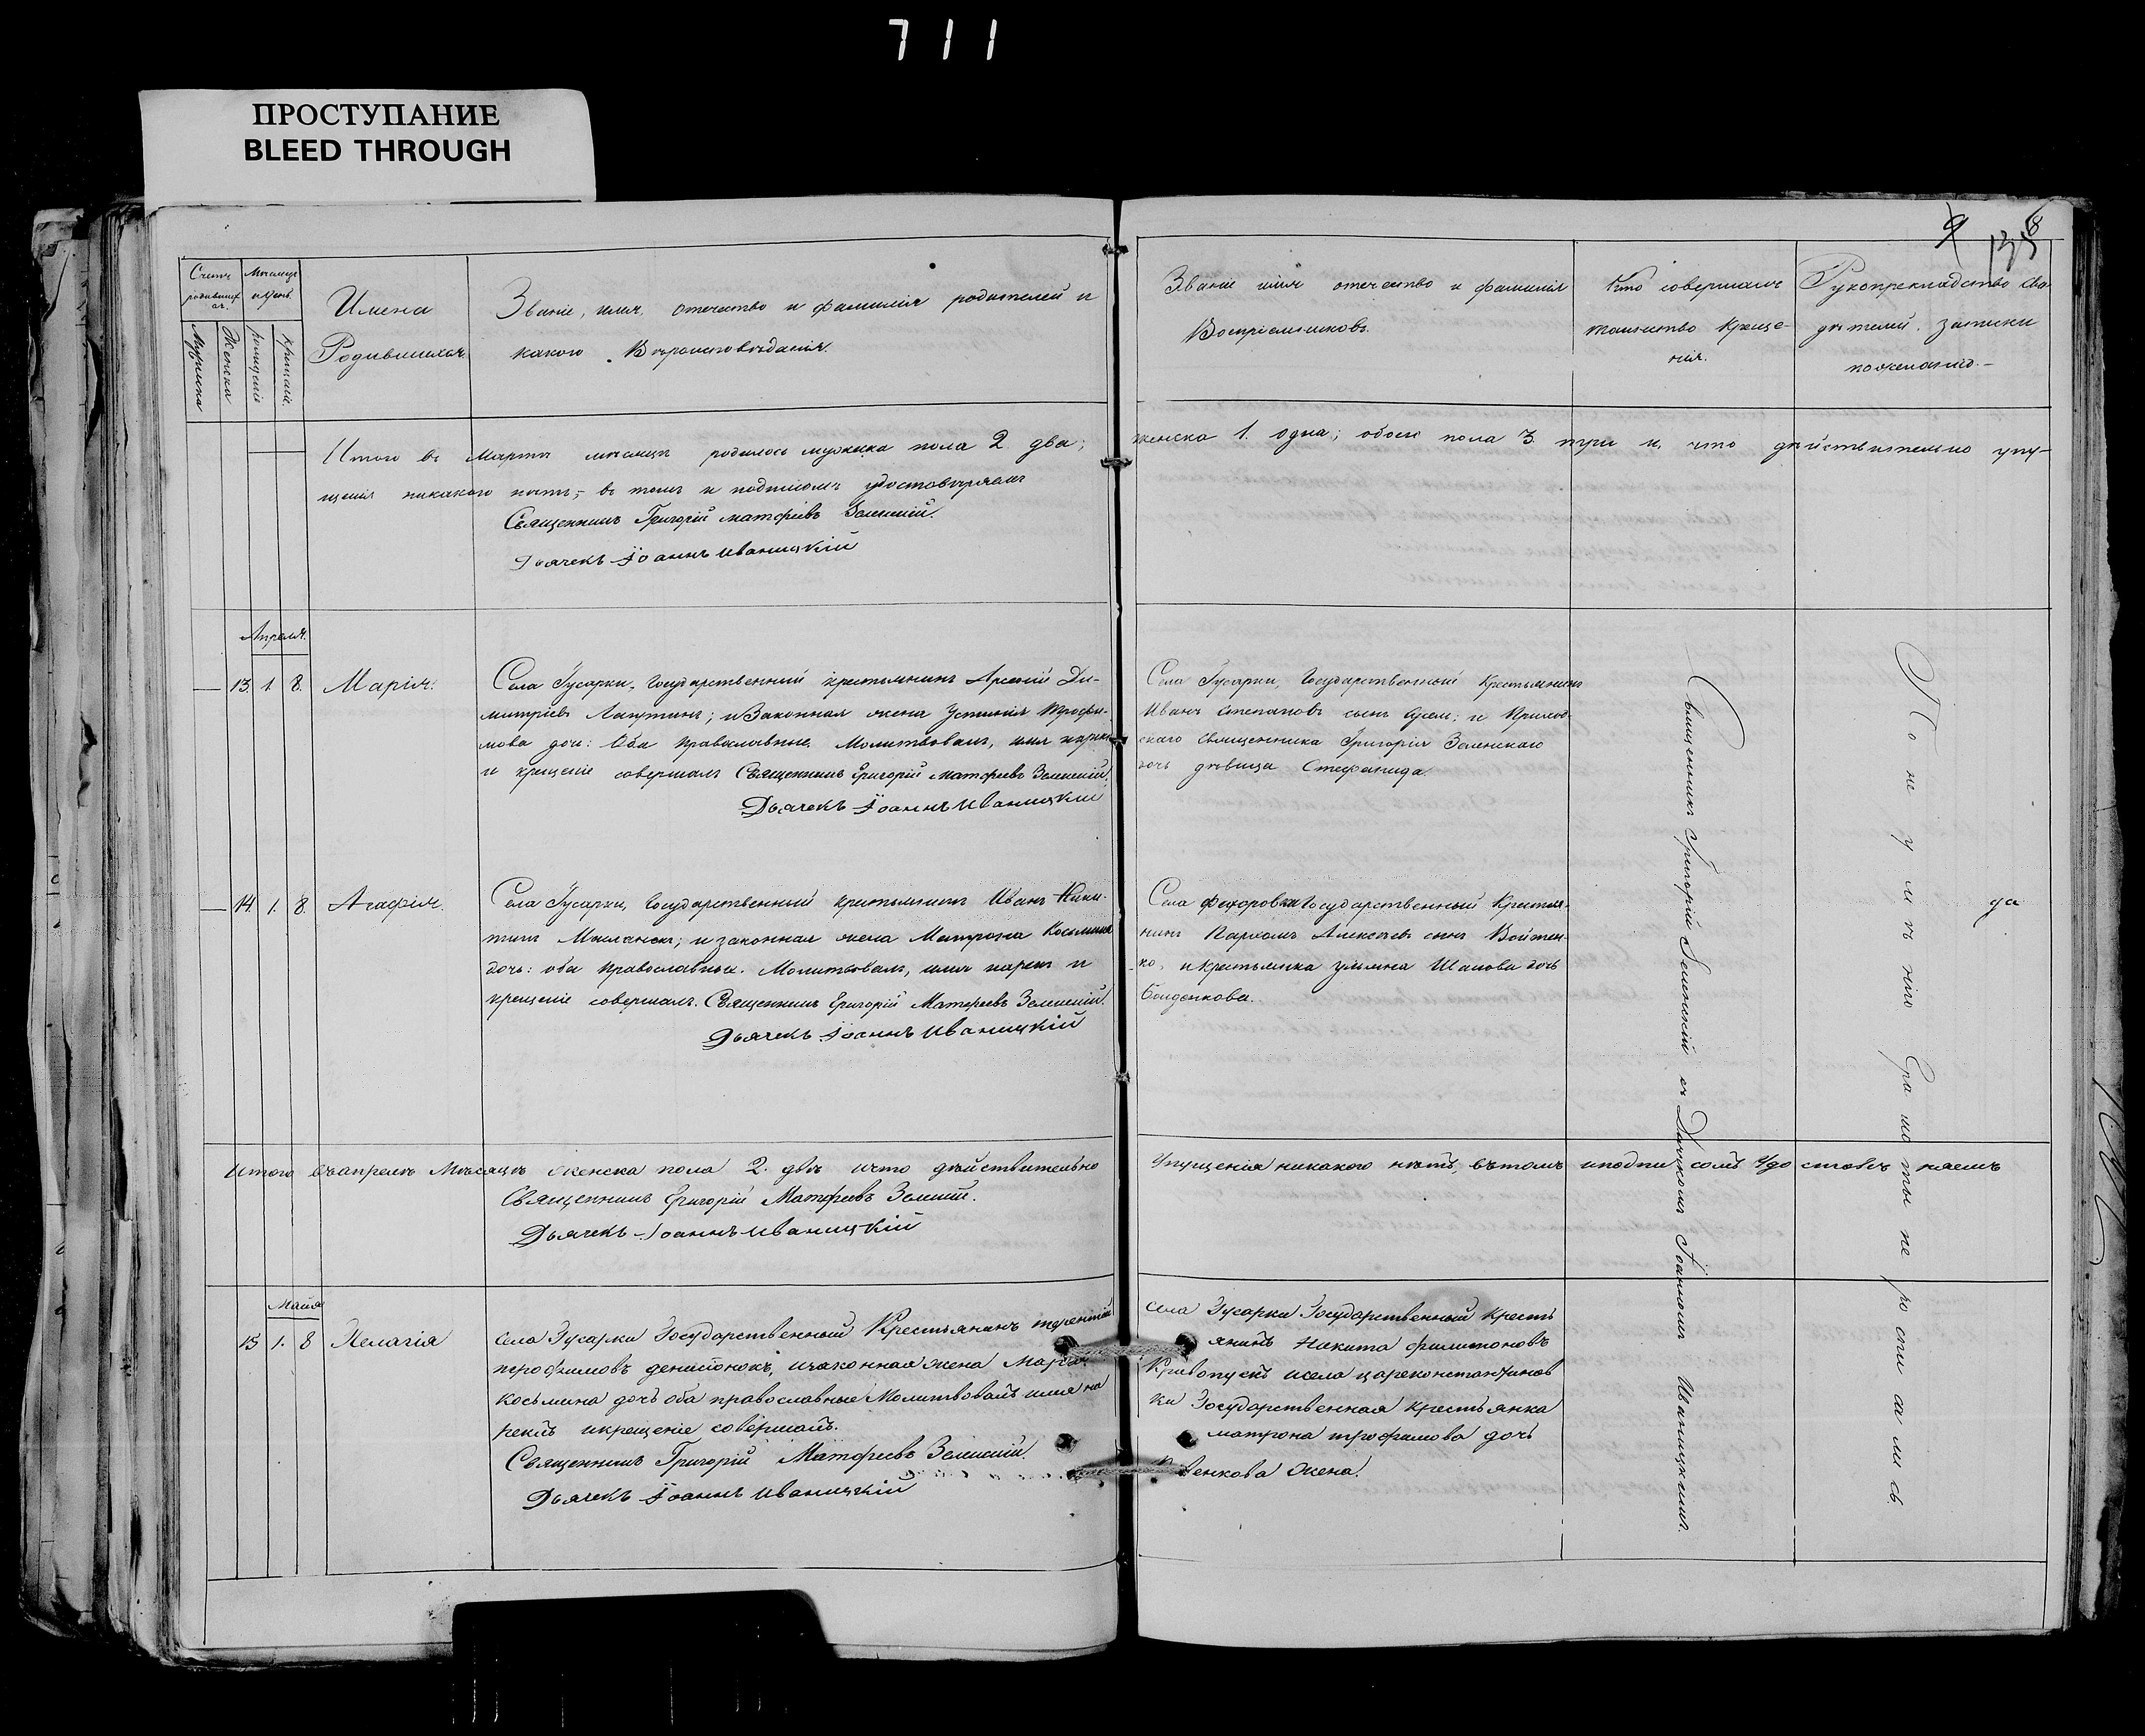 711
ПРОСТУПАНИЕ
BLEED THROUGH
9 8
135
Счетъ родившихся.
Мѣсяцъ и день.
Мужеска
Женска
рожденіе
крещеніе.
Имена
Родившихся.
Званіе, имя, отечество и фамилія родителей и
какого Вѣроисповѣданія.
Званіе имя отечество и фамилія
Воспріемниковъ.
Кто совершалъ
таинство Креще-
нія.
Рукоприкладство сви-
дѣтелей записки
по желанію.-
Итого въ Мартѣ мѣсяцѣ родилось мужеска пола 2 два; женска 1. одна; обоего пола 3 три и, что дѣйствительно упу-
щенія никакого нѣтъ,- въ томъ и подписомъ удостовѣряемъ
Священникъ Григорій Матѳеевъ Зеленскій.
Дьячекъ Іоаннъ Иваницкій
Апрѣля.
13. 1. 8. Марія.
Села Гусарки, Государственный крестьянинъ Арсеній Ди-
митріевъ Лагутинъ; и Законная жена Устинія Трофи-
мова дочь: Оба православные. Молитвовалъ, имя нарекъ
и крещеніе совершалъ Священникъ Григорій Матѳеевъ Зеленскій.
Дьячекъ Іоаннъ Иваницкій
Села Гусарки, Государственный Крестьянинъ
Иванъ Степановъ сынъ и Приход-
скаго Священника Григорія Зеленскаго
дочь дѣвица Стефанида.
14. 1. 8. Агафія.
Села Гусарки, Государственный крестьянинъ Иванъ Ники-
тинъ и законная жена Матрона Косьмина
дочь: оба православные. Молитвовалъ, имя нарекъ и
крещеніе совершалъ. Священникъ Григорій Матѳеевъ Зеленскій.
Дьячекъ Іоаннъ Иваницкій
Села Федоровки Государственный Крестья-
нинъ Пархомъ Алексѣевъ сынъ Войтен-
ко, и крестьянка Ульяна дочь
да
Итого въ апрелѣ Мѣсяцѣ женска пола 2. двѣ и что дѣйствительно Упущенія никакого нѣтъ, въ томъ и подписомъ Удостовѣряемъ
Священникъ Григорій Матѳеевъ Зеленскій.
Дьячекъ Іоаннъ Иваницкій
Майя
15 1. 8 Пелагія
села Гусарки Государственный Крестьянинъ терентій
трофимовъ и законная жена Марія
косьмина дочь оба православные Молитвовалъ имя на
рекъ и крещеніе совершалъ.
Священникъ Григорій Матѳеевъ Зеленскій.
Дьячекъ Іоаннъ Иваницкій
села Гусарки Государственный Кресть
янинъ Никита филимоновъ
Кривопускъ и села цареконстантинов
ки Государственная крестьянка
матрона трофимова дочь
жена.
Священникъ Григорій Зеленскій съ Дьячкомъ Іоанномъ Иваницкимъ.
По неумѣнію Грамоты не росписались